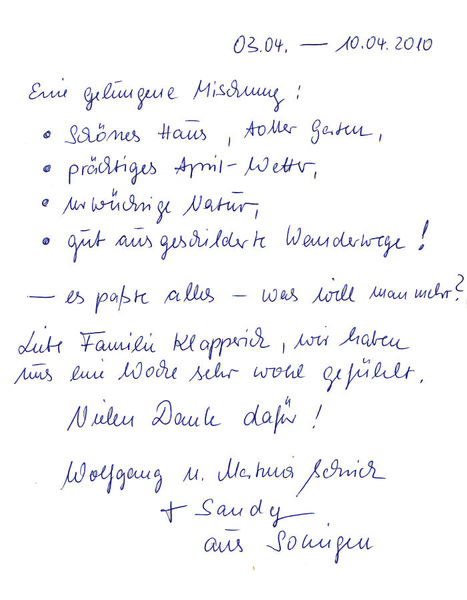 03.04. — 10.04.2010
Eine gelungene Mischung:
• schönes Haus, toller Garten,
• prächtiges April-Wetter,
• urwüchsige Natur,
• gut ausgeschilderte Wanderwege!
— es paßte alles – was will man mehr?
Liebe Familie Klapperich, wir haben
uns eine Woche sehr wohl gefühlt.
Vielen Dank dafür!
Wolfgang u. Martina
+ Sandy
aus Solingen